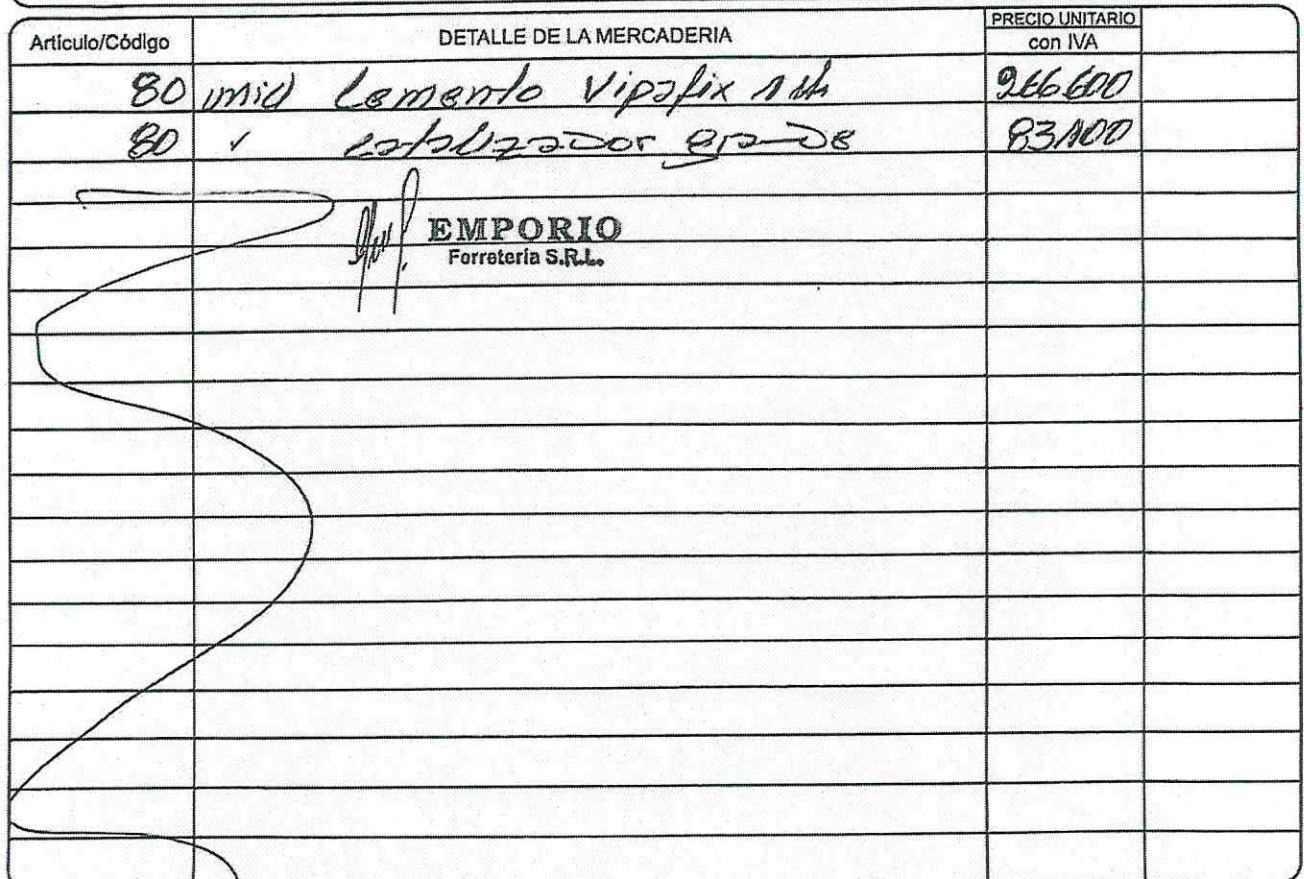 Artículo/Código DETALLE DE LA MERCADERIA PRECIO UNITARIO con IVA
80 Cemento Vipafix 266.600
80 " catalizador grande 83.100
EMPORIO
Ferretería S.R.L.